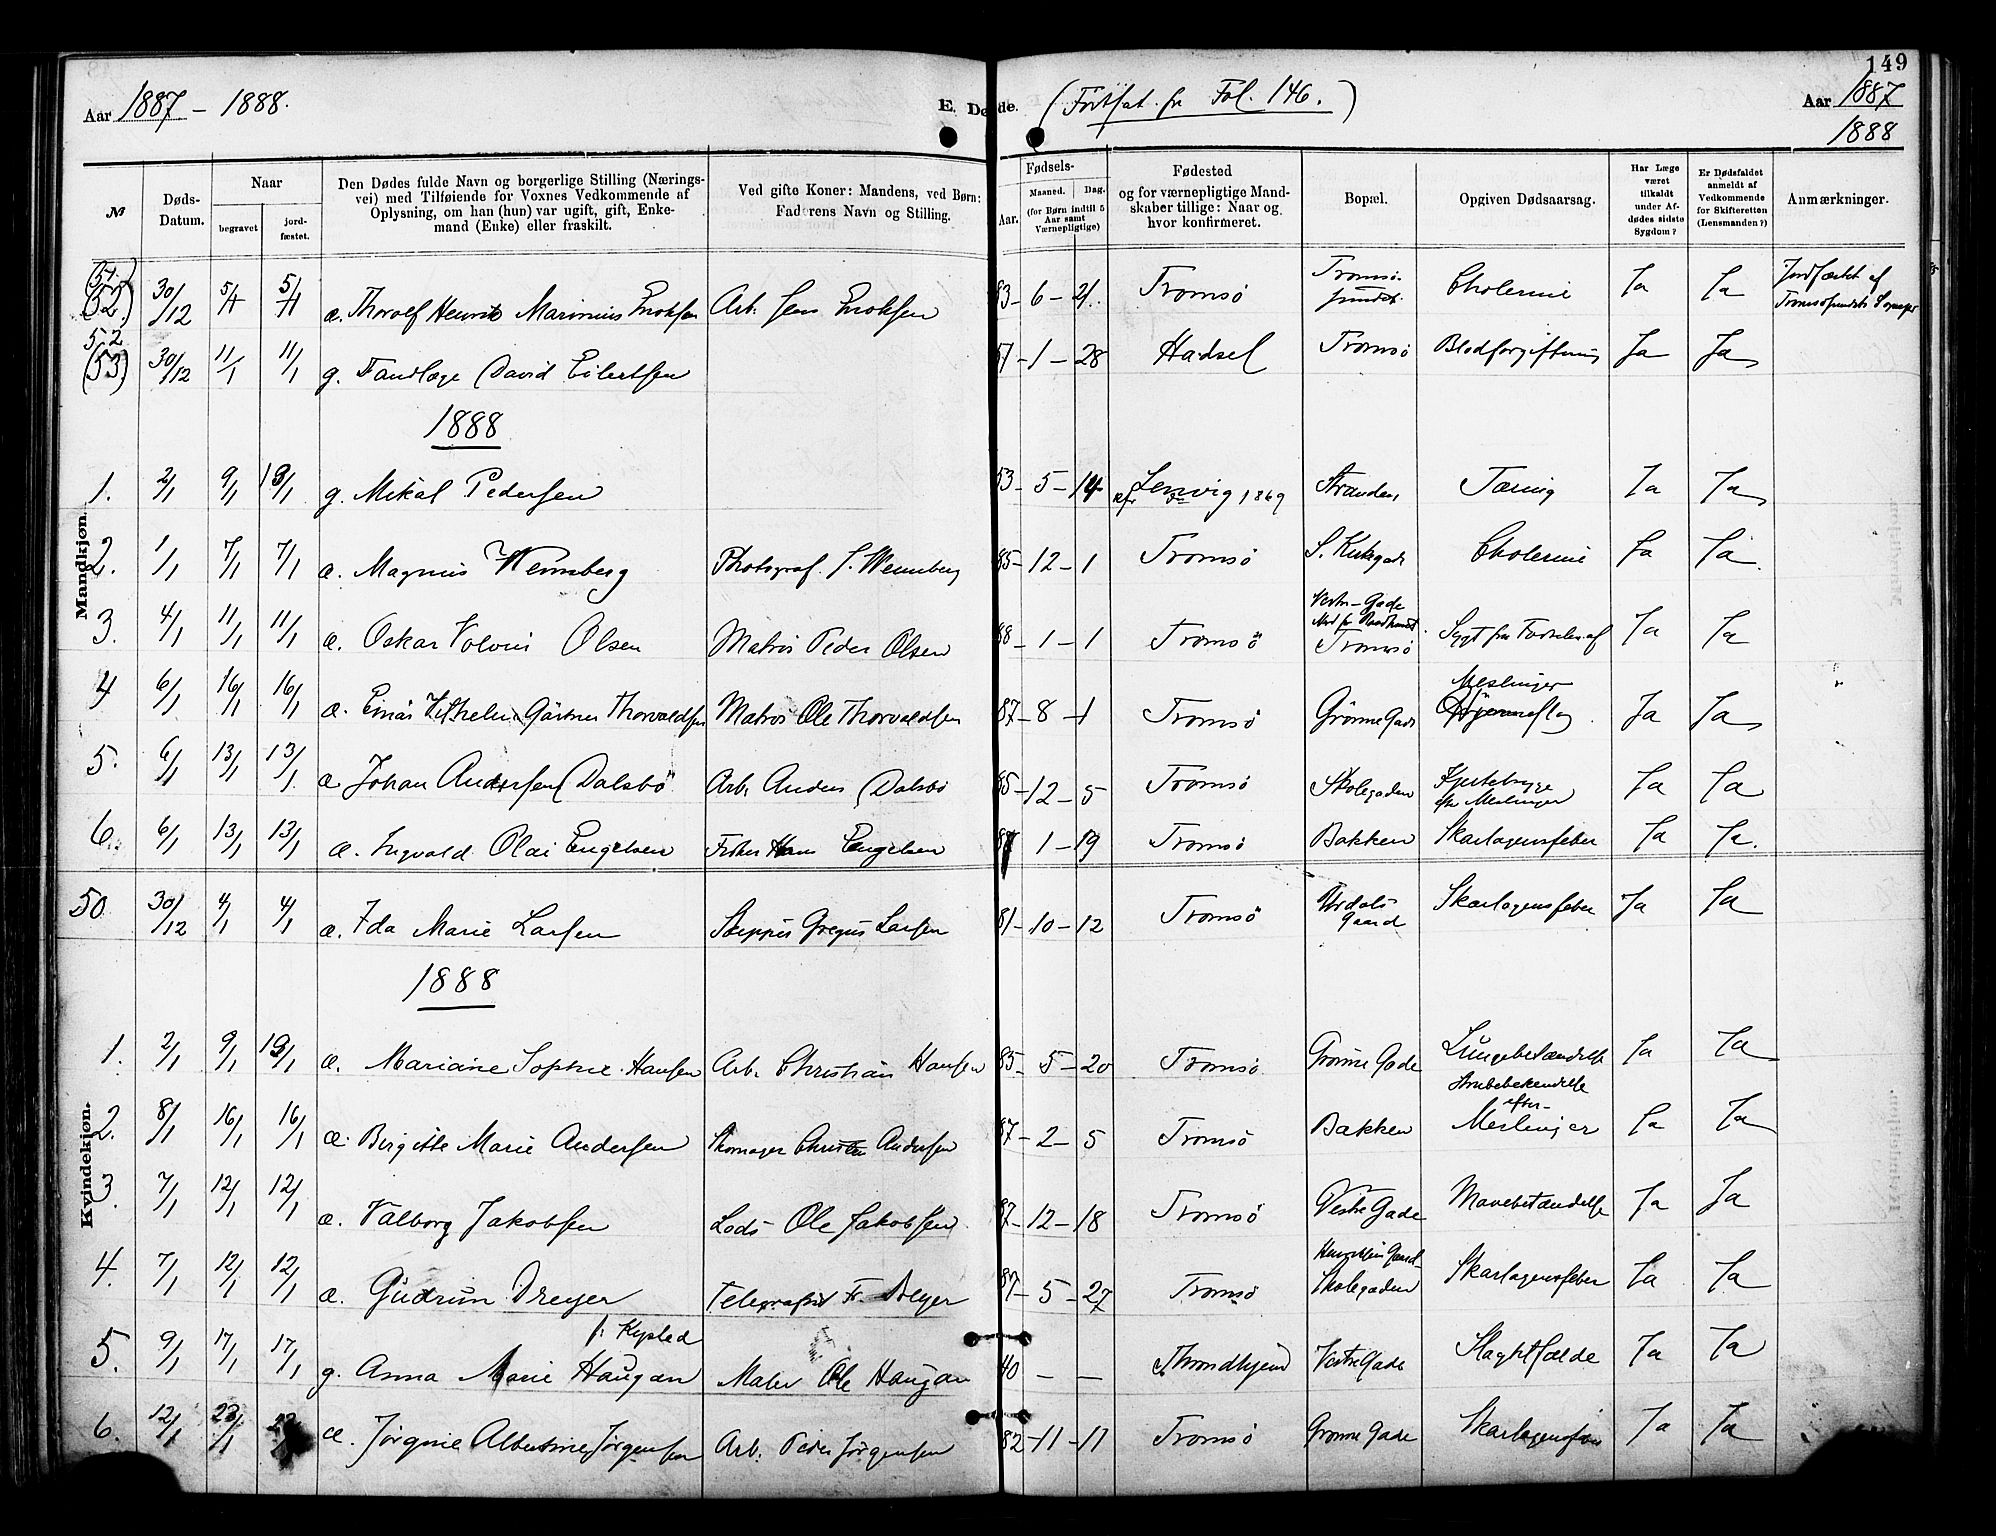 149
Aar 1887 - 1888.
E. Døde.
(Fortsat. fr Fol. 146.)
Aar 1887
1888
№
Døds-Datum.
Naar
begravet
jord-fæstet.
Den Dødes fulde Navn og borgerlige Stilling (Nærings-
vei) med Tilføiende for Voxnes Vedkommende af
Oplysning, om han (hun) var ugift, gift, Enke-
mand (Enke) eller fraskilt.
Ved gifte Koner: Mandens, ved Børn:
Faderens Navn og Stilling.
Fødsels-
Aar. Maaned. Dag.
(for Børn indtil 5
Aar samt
Værnepligtige)
Fødested
og for værnepligtige Mand-
skaber tillige: Naar og
hvor konfirmeret.
Bopæl.
Opgiven Dødsaarsag.
Har Læge
været
tilkaldt
under Af-
dødes sidste
Sygdom?
Er Dødsfaldet
anmeldt af
Vedkommende
for Skifteretten
(Lensmanden?)
Anmærkninger.
Mandkjøn.
(51.
(52.) 30/12 5/1 5/1 æ. Thorolf Henrik Marinius Enoksen Arb. Jens Enoksen 83 - 6 - 21. Tromsø Tromsø-sundet. Cholerine Ja Ja Jordfæstet af Tromsøsundets
52
(53) 30/12 11/1 11/1 g. Tandlæge David Eilertsen 51 - 1 - 28 Hadsel Tromsø Blodforgiftning Ja Ja
1888
1. 2/1 9/1 g. Mikal Pedersen 53 - 5 - 14 Lenvig 1869 Stranden Tæring Ja Ja
2. 1/1 7/1 7/1 æ. Magnus Wennberg Photograf. Wennberg 85 - 12 - 1 Tromsø S. Kirkegade Cholerine Ja Ja
3. 4/1 11/1 11/1 æ. Oskar Olsen Matros Peder Olsen 88 - 1 - 1 Tromsø Vestre-Gade Tromsø Sygt fra Fødselen af Ja Ja
4 6/1 16/1 16/1 æ. Einar Vilhelm Gärtner Thorvaldsen Matros Ole Thorvaldsen 87 - 8 - 1 Tromsø Grønne Gade Meslinger Ja Ja
5. 6/1 13/1 13/1. æ Johan Andersen Dalsbø Arb. Anders Dalsbø 85 - 12 - 5 Tromsø Skolegaden efter Meslinger Ja Ja
6. 6/1 13/1 13/1 æ. Ingvald Olai Engelsen Fisker Hans Engelsen 1 - 19 Tromsø Bakken Skarlagensfeber Ja Ja.
50 30/12 4/1 4/1 æ. Ida Marie Larsen Skipper Larsen 81 - 10 - 12 Tromsø Gaard Skarlagensfeber Ja Ja
1888
Kvindekjøn.
1. 2/1 9/1 æ. Mariane Sophie Hansen Arb. Christian Hansen 85 - 5 - 20 Tromsø Grønne Gade Lungebetændelse Ja Ja
2. 8/1 16/1 16/1 æ. Birgitte Marie Andersen Skomager Andersen 87 - 2 - 5 Tromsø Bakken Strubebetændelse efter Meslinger Ja Ja
3. 7/1 12/1 12/1 æ. Valborg Jakobsen Lods Ole Jakobsen 87 - 12 - 18 Tromsø Vestre Gade Mavebetændelse Ja Ja
4. 7/1 12/1 12/1 æ. Gudrun Dreyer Telegrafist Fr. Dreyer 87 - 5 - 27 Tromsø Skolegaden Skarlagensfeber Ja Ja
5. 9/1 17/1 17/1 g. Anna Marie Haugan Maler Ole Haugan 40 - - Throndhjem Vestre Gade Slagtilfælde Ja Ja
6. 12/1 23/1 æ. Jørgine Albertine Jørgensen Arb. Peder Jørgensen 82 - 11 - 11 Tromsø Grønne Gade Ja Ja